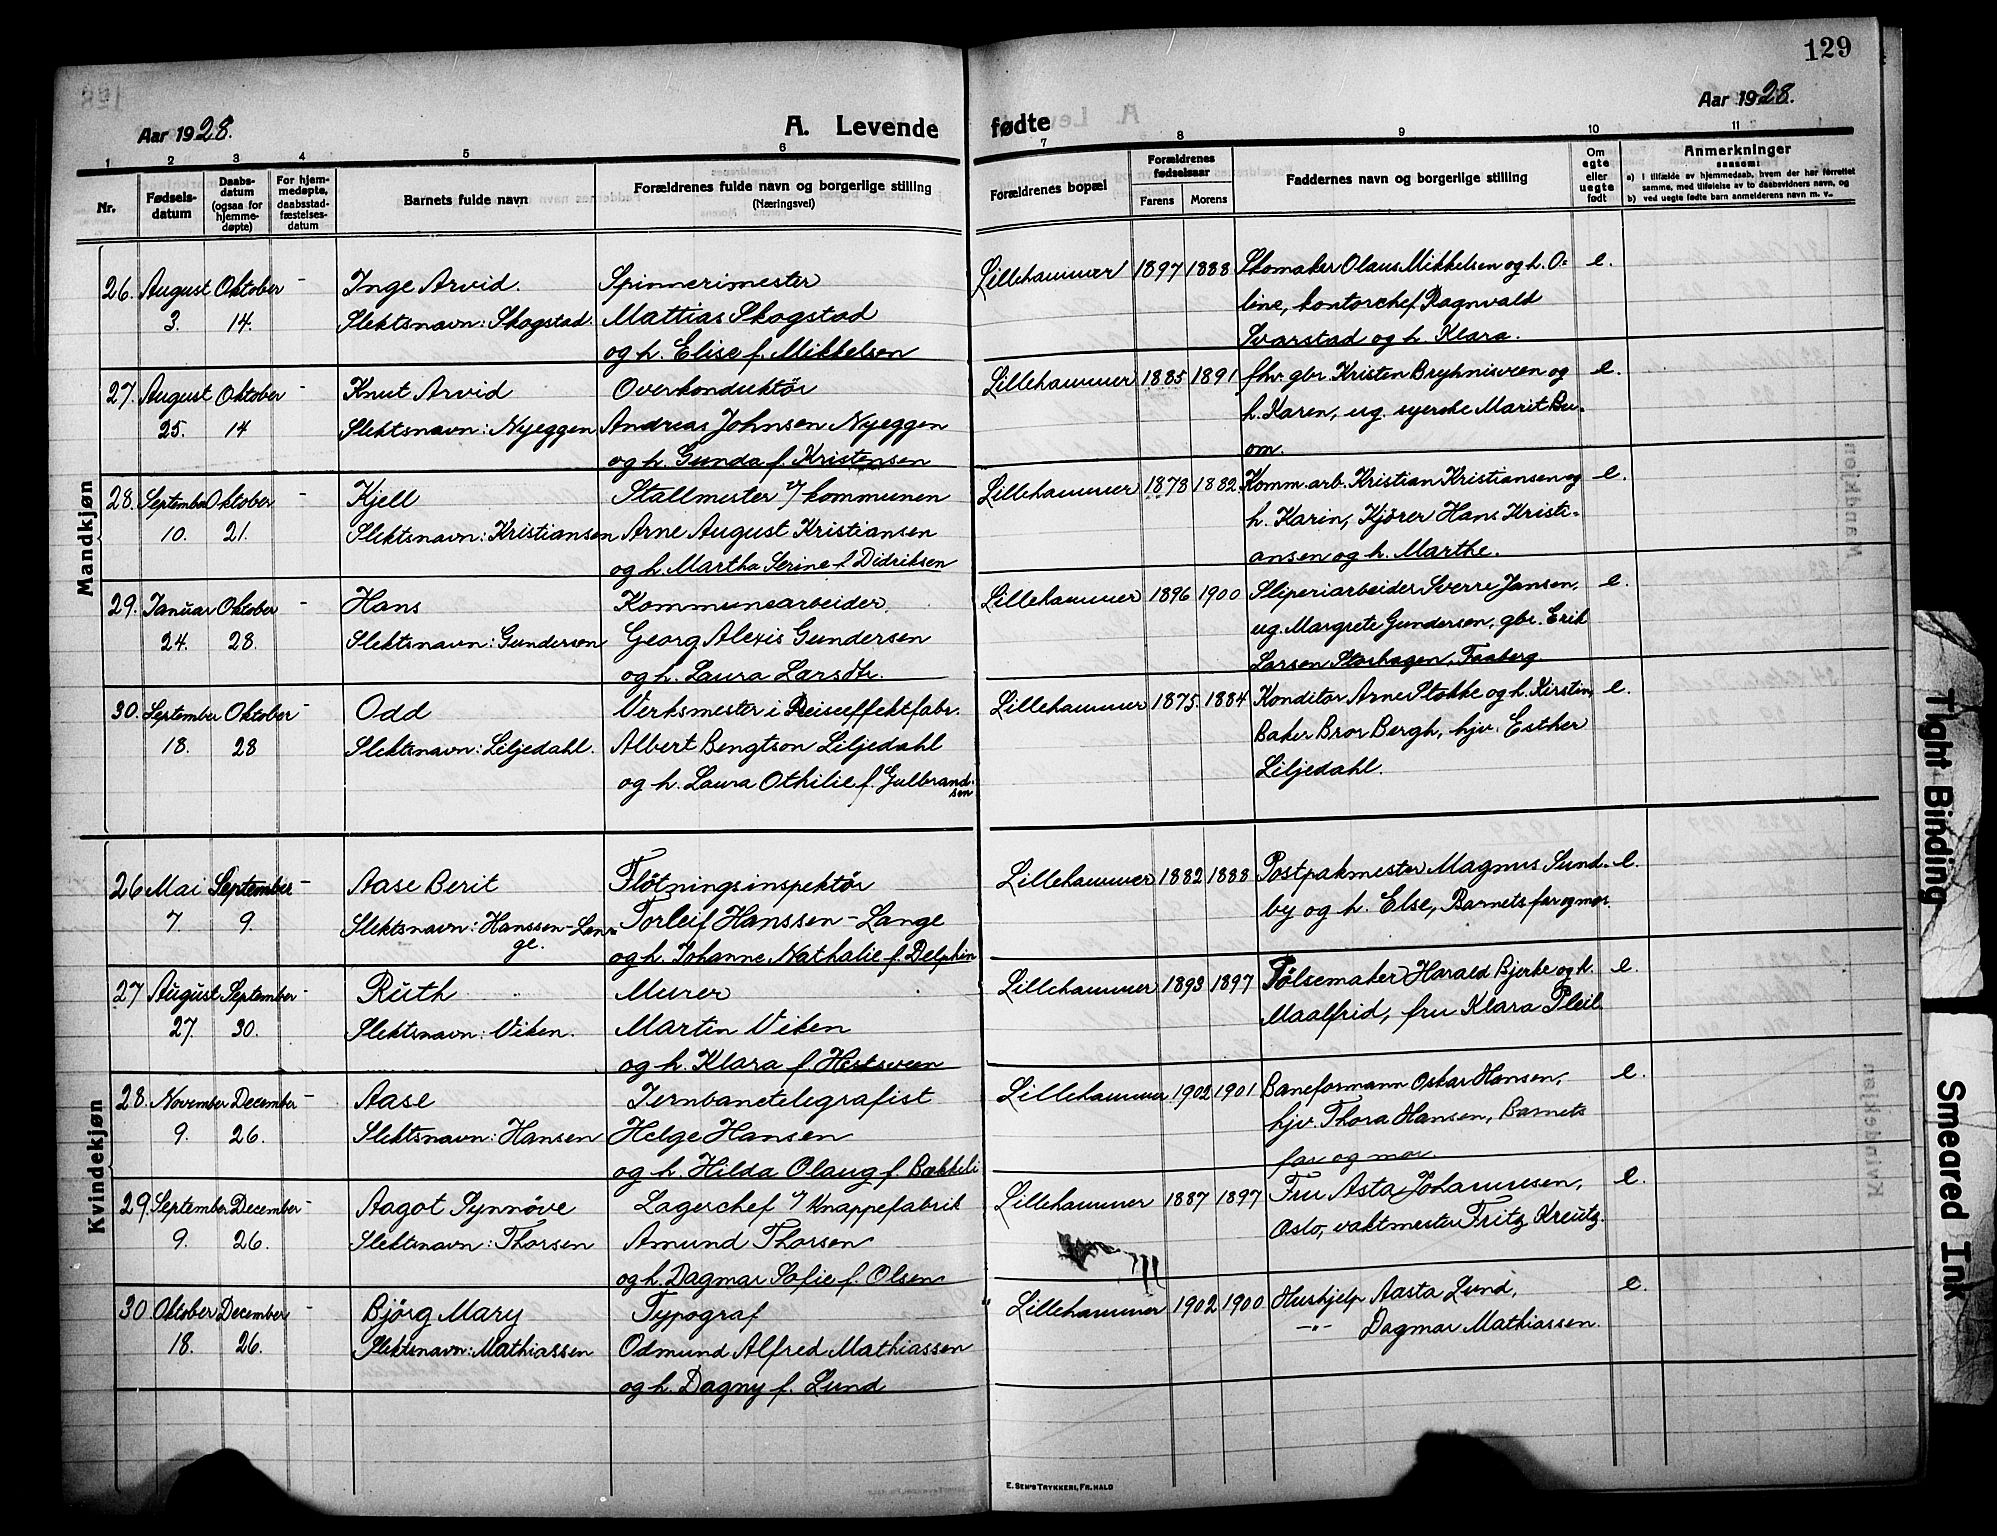 129
Aar 1928.
A. Levende fødte
Aar 1928.
1 2 3 4 5 6 7 8 9 10 11
Nr.
Fødsels-
datum
Daabs-
datum
(ogsaa for
hjemme-
døpte)
For hjem-
medøpte,
daabsstad-
fæstelses-
datum
Barnets fulde navn
Forældrenes fulde navn og borgerlige stilling
(Næringsvei)
Forældrenes bopæl
Forældrenes
fødselsaar
Farens Morens
Faddernes navn og borgerlige stilling
Om
egte
eller
uegte
født
Anmerkninger
saasom:
a) i tilfælde av hjemmedaab, hvem der har forrettet
samme, med tilføielse av to daabsvidners navn, og
b) ved uegte fødte barn anmelderens navn m. v.
Mandkjøn
26. August Oktober - Inge Arvid. Spinnerimester Lillehammer 1897 1888 Skomaker Olaus Mikkelsen og h. O- e.
3. 14. Slektsnavn: Skogstad. Mattias Skogstad line, kontorchef Ragnvald
og h. Elise f. Mikkelsen Svarstad og h. Klara.
27. August Oktober - Knut Arvid Overkonduktör Lillehammer 1885 1891 fhv. gbr. Kristen Bryhnisveen og e.
25. 14 Slektsnavn: Nyeggen Andreas Johnsen Nyeggen h. Karen, ug. syerske Marit Bu-
og h. Gunda f. Kristensen om.
28. September Oktober - Kjell Stallmester v/ kommunen Lillehammer 1878 1882 Komm. arb. Kristian Kristiansen og e.
10. 21. Slektsnavn: Kristiansen Arne August Kristiansen h. Karin, Kjörer Hans Kristi-
og h. Martha Serine f. Didriksen ansen og h. Marthe.
29. Januar Oktober - Hans Kommunearbeider. Lillehammer 1896 1900 Sliperiarbeider Sverre Jansen, e.
24. 28. Slektsnavn: Gundersen Georg Alexis Gundersen ug. Margrete Gundersen, gbr. Erik
og h. Laura Larsdtr. Larsen Storhagen, Faaberg.
30. September Oktober - Odd Verksmester i Reiseeffektfabr. Lillehammer 1875. 1884 Konditor Arne Stokke og h. Kirstin, e.
18. 28 Slektsnavn: Liljedahl. Albert Bengtson Liljedahl Baker Bror Bergh, hjv. Esther
og h. Laura Othilie f. Gulbrand- Liljedahl.
sen
Kvindekjøn
26 Mai September - Aase Berit Flötningsinspektör Lillehammer 1882 1888 Postpakmester Magnus Sund- e.
7 9. Slektsnavn: Hanssen-Lan- Torleif Hanssen-Lange by og h. Else, Barnets far og mor.
ge. og h. Johanne Nathalie f. Delphin
27 August September - Ruth Murer Lillehammer 1893 1897 Pölsemaker Harald Bjerke og h. e.
27. 30. Slektsnavn: Viken. Martin Viken Maalfrid, fru Klara Pleil
og h. Klara f. Hestsveen
28. November December - Aase Jernbanetelegrafist Lillehammer 1902 1901 Baneformann Oskar Hansen, e.
9. 26. Slektsnavn: Hansen Helge Hansen hjv. Thora Hansen, Barnets
og h. Hilda Olaug f. Bækkeli far og mor.
29. September December - Aagot Synnöve Lagerchef v/ Knappefabrik Lillehammer 1887 1897 Fru Asta Johannesen, e.
9. 26. Slektsnavn: Thorsen Amund Thorsen Oslo, vaktmester Fritz Kreutz.
og h. Dagmar Sofie f. Olsen
30. Oktober December - Björg Mary Typograf Lillehammer 1902 1900 Hushjelp Aasta Lund, e.
18. 26. Slektsnavn: Mathiassen Odmund Alfred Mathiassen -"- Dagmar Mathiassen.
og h. Dagny f. Lund
E. SEM'S TRYKKERI, FR.HALD
Tight Binding
Smeared Ink